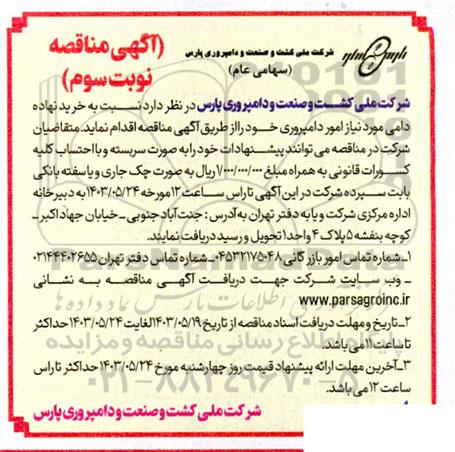 (آگهی مناقصه
نوبت سوم)
شرکت ملی کشت و صنعت و دامپروری پارس
(سهامی عام)
شرکت ملی کشت و صنعت و دامپروری پارس در نظر دارد نسبت به خرید نهاده
دامی مورد نیاز امور دامپروری خود را از طریق آگهی مناقصه اقدام نماید. متقاضیان
شرکت در مناقصه می توانند پیشنهادات خود را به صورت سربسته و با احتساب کلیه
کسورات قانونی به همراه مبلغ ۷۰۰۰/۰۰۰/۰۰۰ ریال به صورت چک جاری و یا سفته بانکی
بابت سپرده شرکت در این آگهی تا راس ساعت ۱۲ مورخه ۱۴۰۳/۰۵/۲۴ به دبیرخانه
اداره مرکزی شرکت و یا به دفتر تهران به آدرس : جنت آباد جنوبی - خیابان جهاد اکبر -
کوچه بنفشه ۵ پلاک ۴ واحد ۱ تحویل و رسید دریافت نمایند.
۱- شماره تماس امور بازرگانی ۰۴۵۳۲۱۷۵۰۴۸ - شماره تماس دفتر تهران ۰۲۱۴۴۴۰۲۶۵۵
- وب سایت شرکت جهت دریافت آگهی مناقصه به نشانی
www.parsagroinc.ir
۲- تاریخ و مهلت دریافت اسناد مناقصه از تاریخ ۱۴۰۳/۰۵/۱۹ لغایت ۱۴۰۳/۰۵/۲۴ حداکثر
تا ساعت ۱۱ می باشد.
۳- آخرین مهلت ارائه پیشنهاد قیمت روز چهارشنبه مورخ ۱۴۰۳/۰۵/۲۴ حداکثر تا راس
ساعت ۱۲ می باشد.
شرکت ملی کشت و صنعت و دامپروری پارس
۰۲۱-۸۸۳۴۹۶۷۰-۵